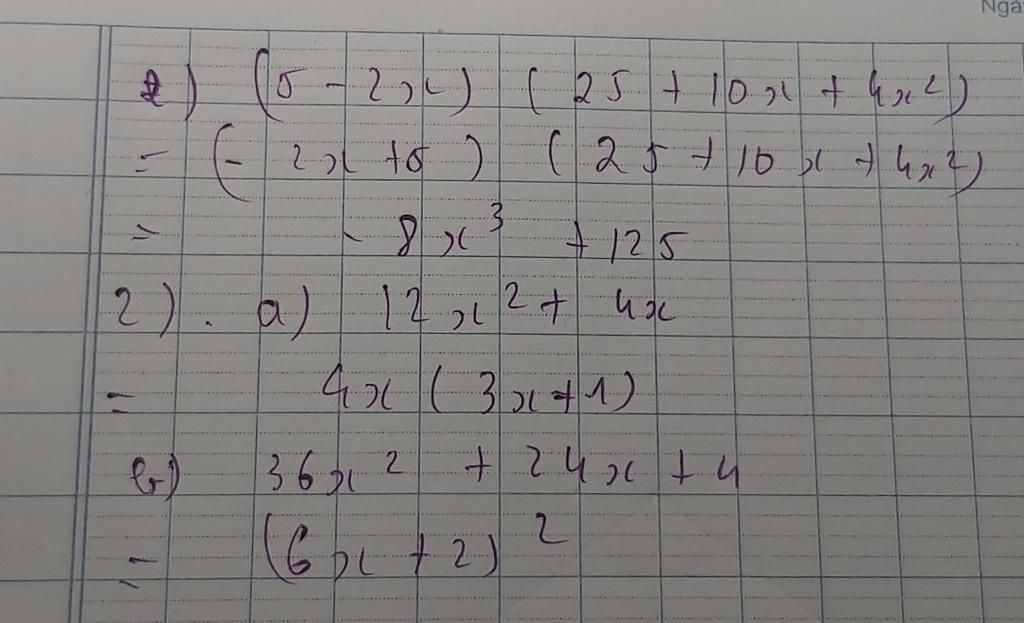 Ngà
e) (5 - 2x) (25 + 10x + 4x²)
= (- 2x + 5) (25 + 10x + 4x²)
= - 8x³ + 125
2). a) 12x² + 4x
= 4x (3x + 1)
b) 36x² + 24x + 4
= (6x + 2)²